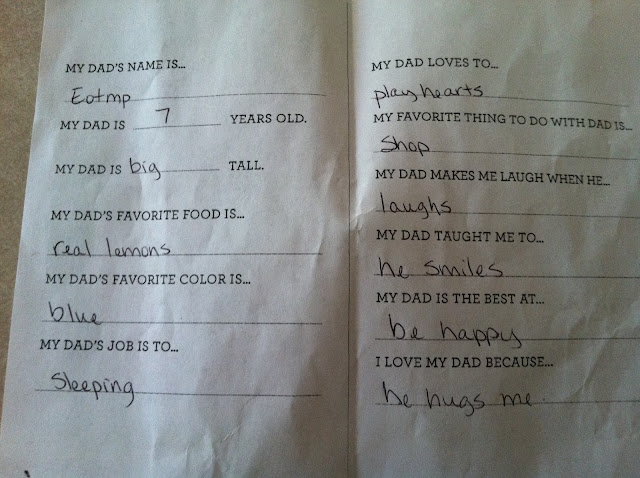 MY DAD'S NAME IS...
Eotmp
MY DAD IS 7 YEARS OLD.
MY DAD IS big TALL.
MY DAD'S FAVORITE FOOD IS...
real lemons
MY DAD'S FAVORITE COLOR IS...
blue
MY DAD'S JOB IS TO...
Sleeping
MY DAD LOVES TO...
play hearts
MY FAVORITE THING TO DO WITH DAD IS...
Shop
MY DAD MAKES ME LAUGH WHEN HE...
laughs
MY DAD TAUGHT ME TO...
he smiles
MY DAD IS THE BEST AT...
be happy
I LOVE MY DAD BECAUSE...
he hugs me.